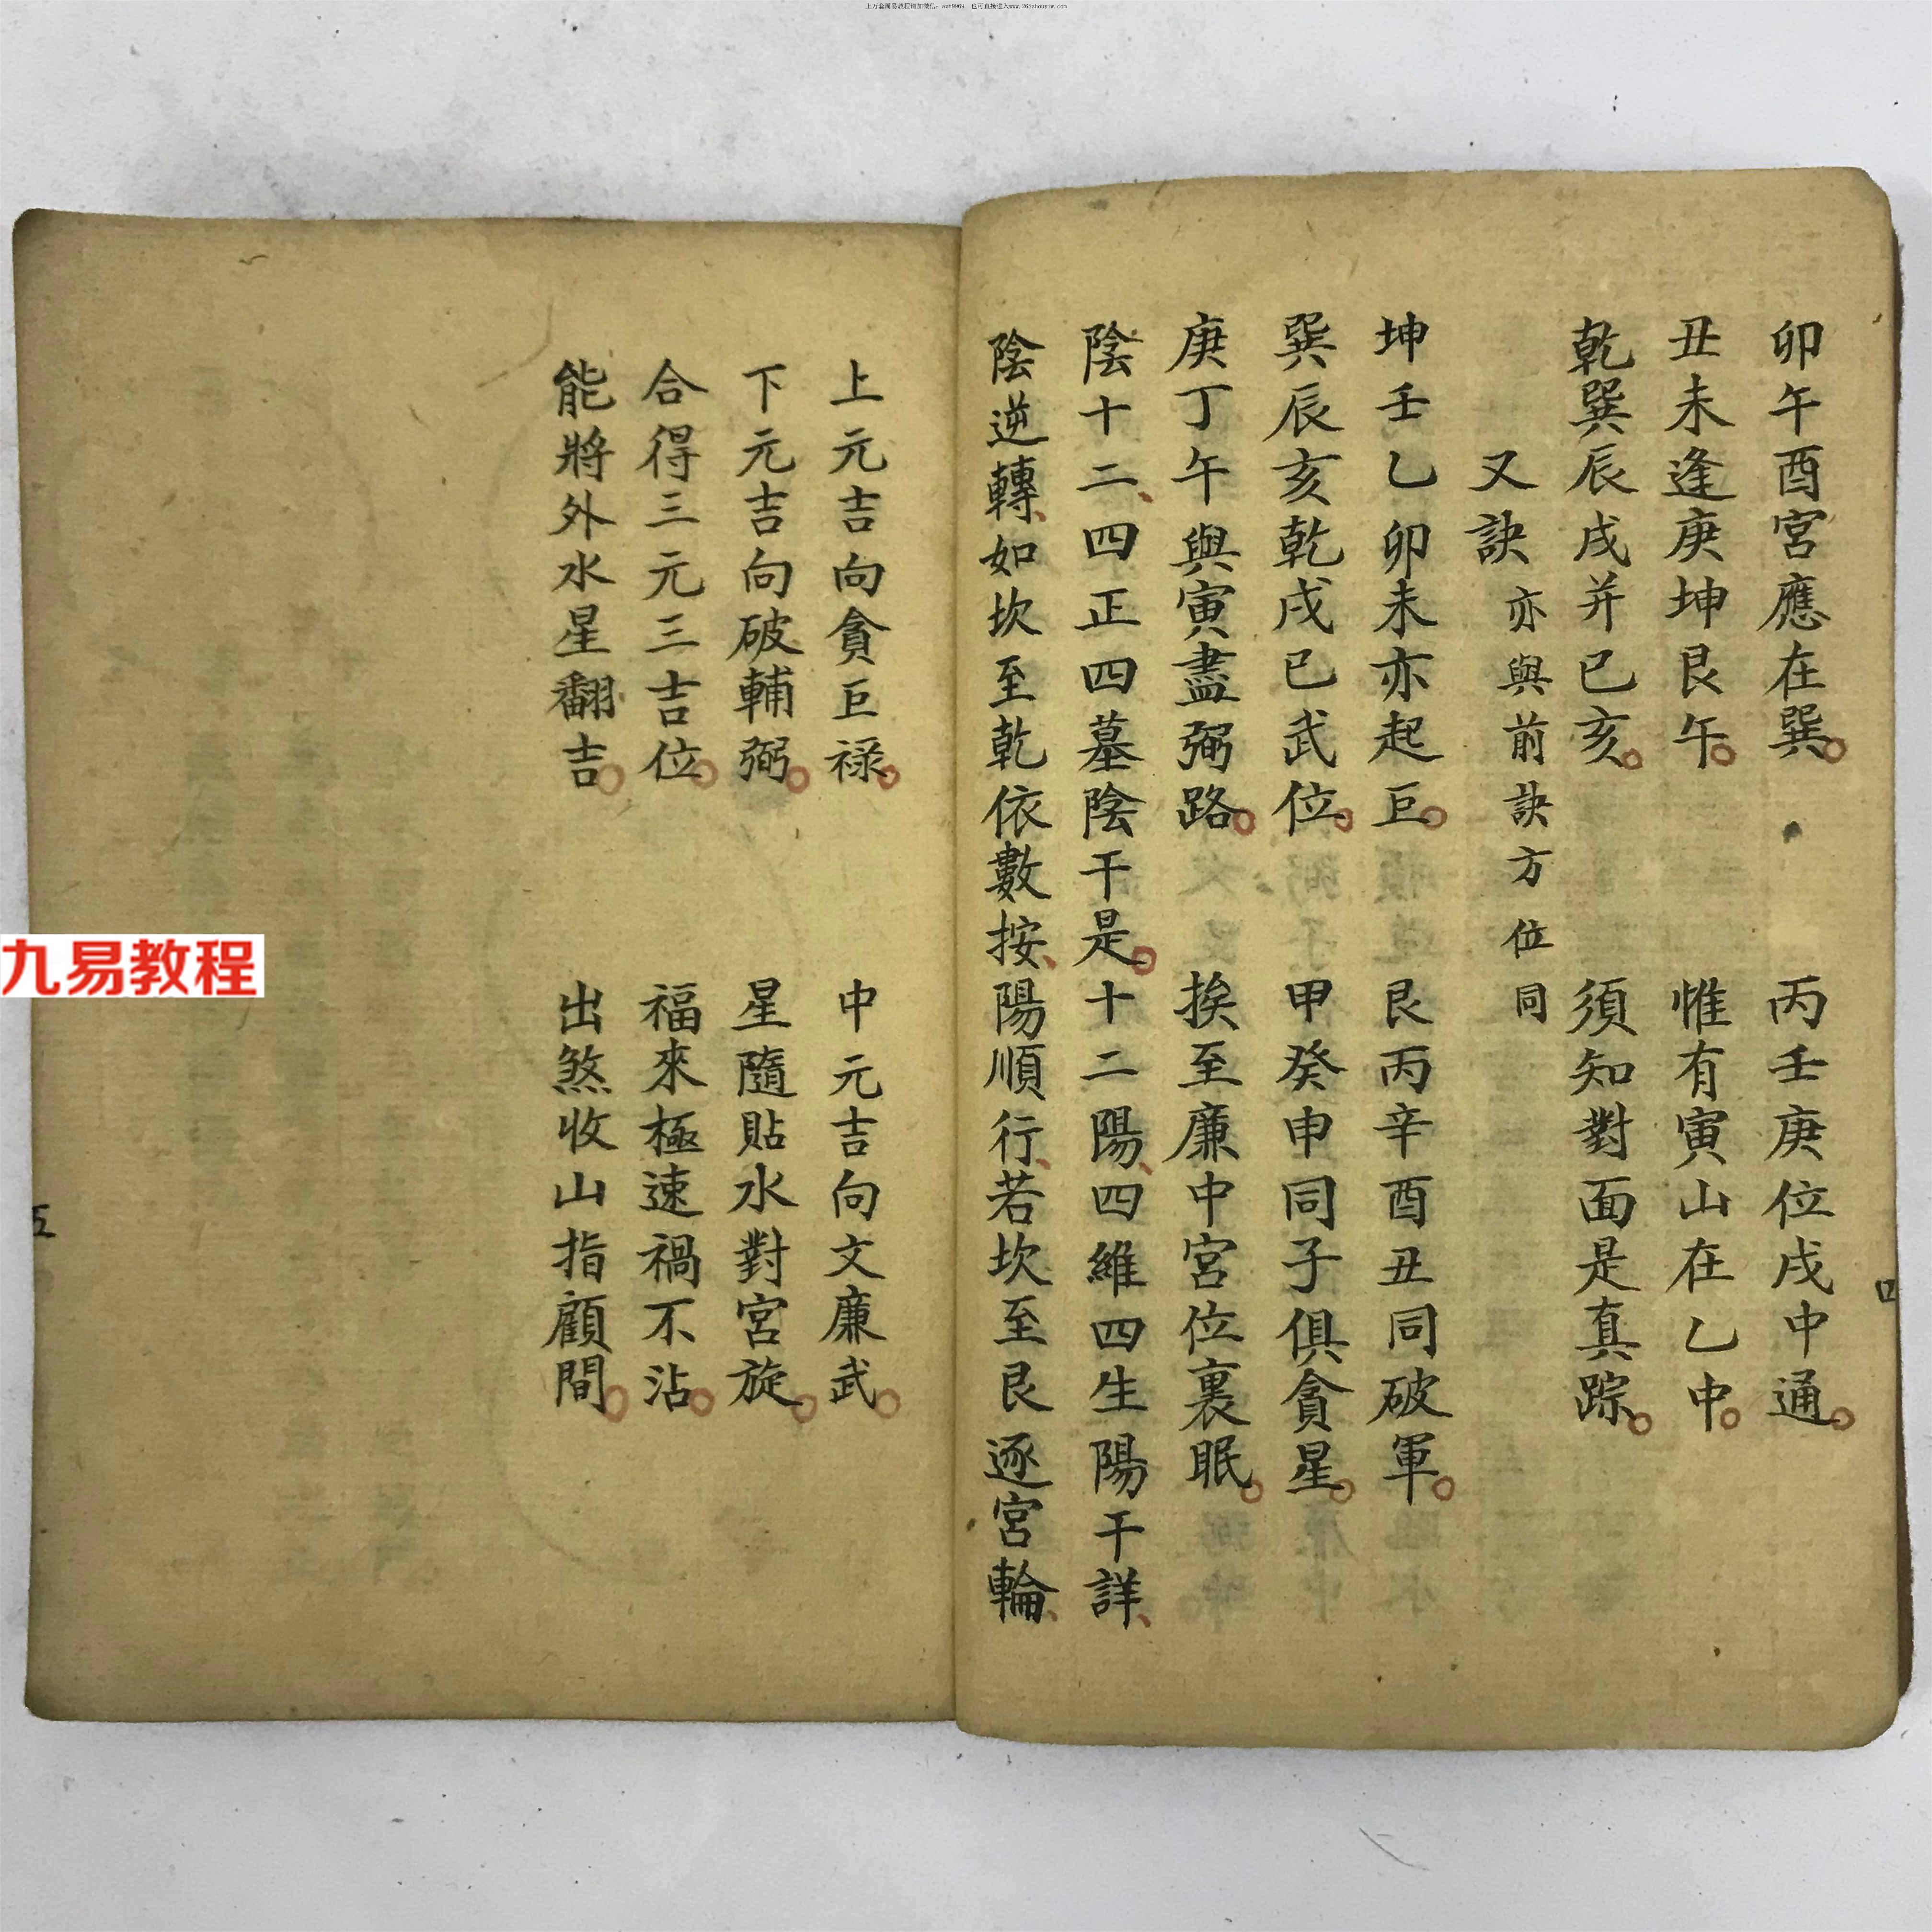 卯午酉宮應在巽。丙壬庚位戌中通。
丑未逢庚坤艮午。惟有寅山在乙中。
乾巽辰戌并巳亥。須知對面是真踪。
又訣 亦與前訣方位同
坤壬乙卯未亦起巨。艮丙辛酉丑同破軍。
巽辰亥乾戌巳武位。甲癸申同子俱貪星。
庚丁午與寅盡弼路。挨至廉中宮位裏眠。
陰十二、四正四墓陰干是。十二陽、四維四生陽干詳、
陰逆轉、如坎至乾依數按、陽順行、若坎至艮逐宮輪、
四
上元吉向貪巨祿。中元吉向文廉武。
下元吉向破輔弼。星隨貼水對宮旋。
合得三元三吉位。福來極速禍不沾。
能將外水星翻吉。出煞收山指顧間。
五
九易教程